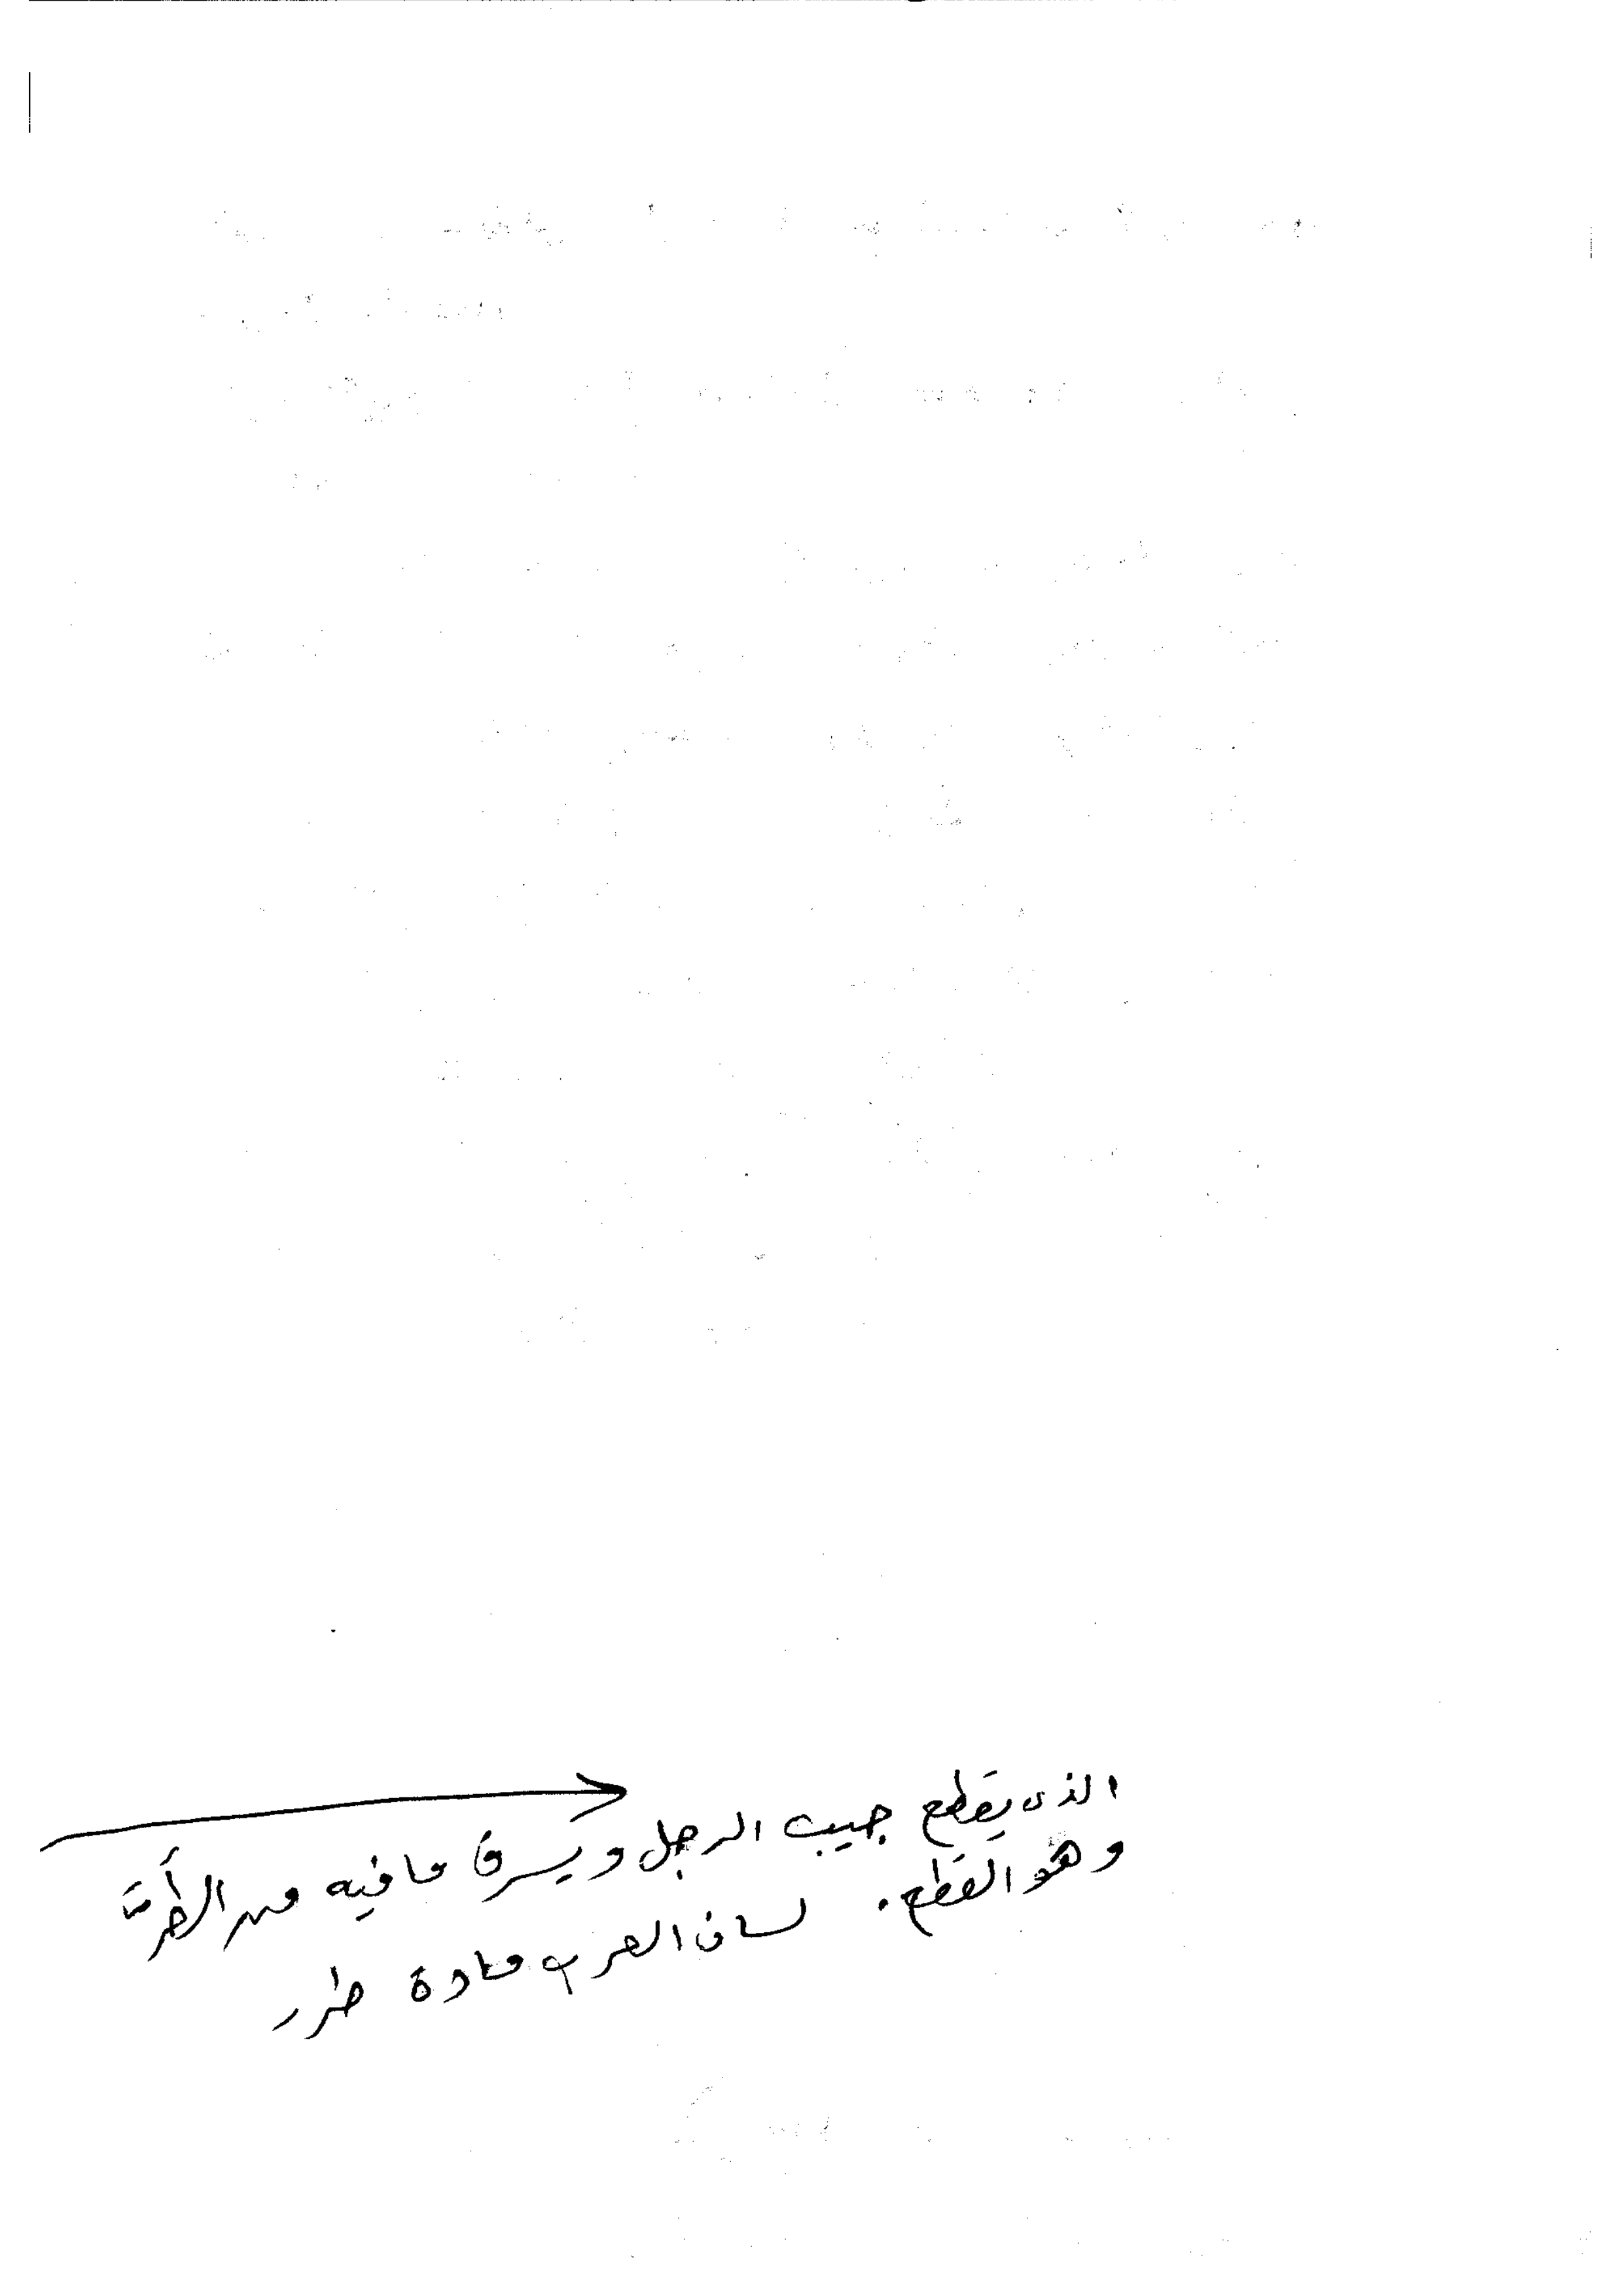 الذى يقطع جيب الرجل ويسرق ما فيه من الطرّ
وهو القطع. لسان العرب مادة طرر